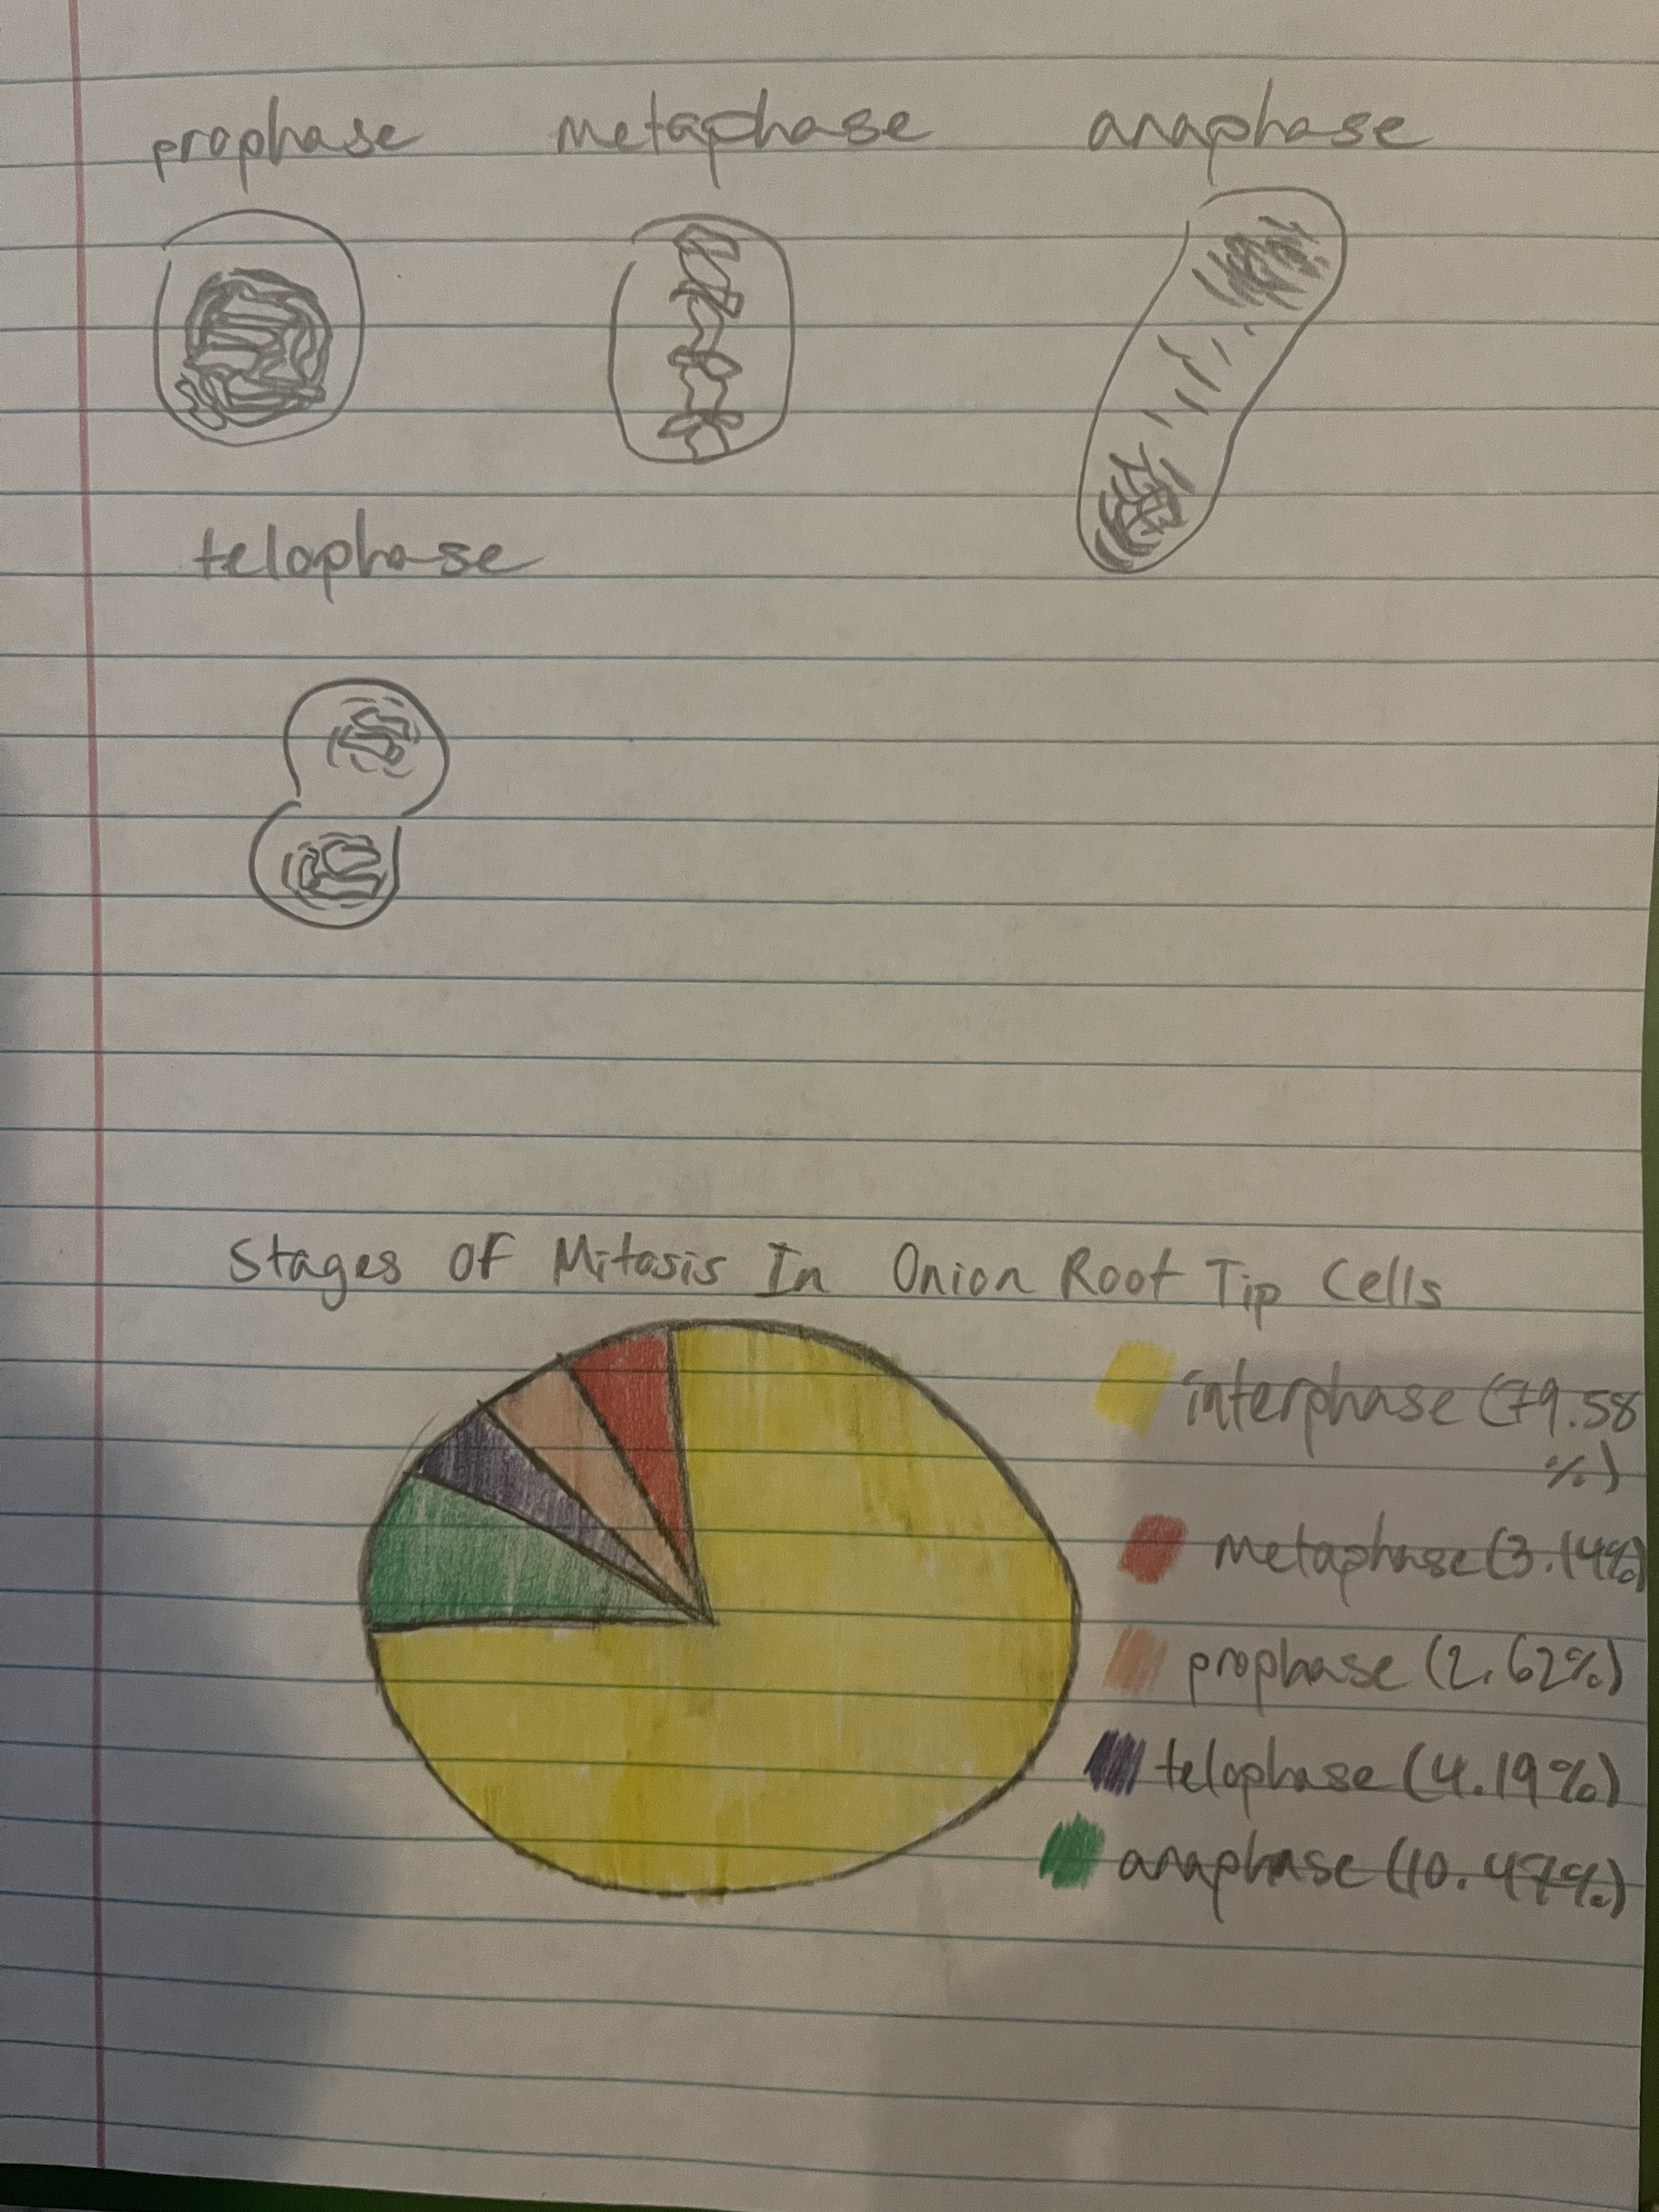 prophase metaphase anaphase
telophase
Stages Of Mitosis In Onion Root Tip Cells
interphase (79.58
%)
metaphase (3.14%)
prophase (2.62%)
telophase (4.19%)
anaphase (10.47%)